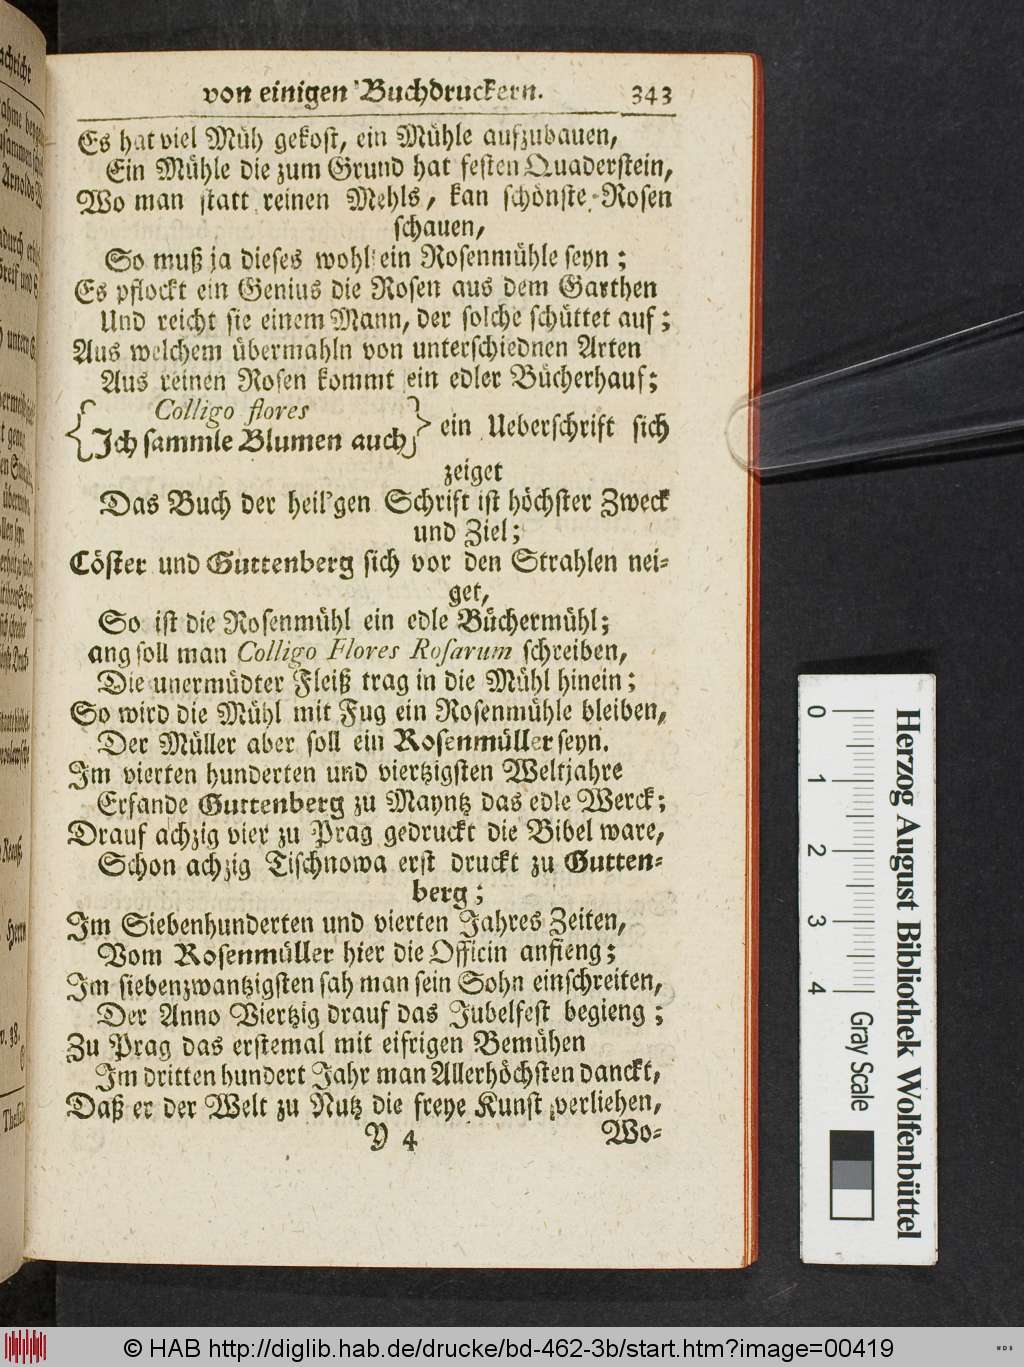 von einigen Buchdruckern. 343
Es hat viel Müh gekost, ein Mühle aufzubauen,
Ein Mühle die zum Grund hat festen Quaderstein,
Wo man statt reinen Mehls, kan schönste Rosen
schauen,
So muß ja dieses wohl ein Rosenmühle seyn;
Es pflockt ein Genius die Rosen aus dem Garthen
Und reicht sie einem Mann, der solche schüttet auf;
Aus welchem übermahln von unterschiednen Arten
Aus reinen Rosen kommt ein edler Bücherhauf;
{Colligo flores
Ich sammle Blumen auch} ein Ueberschrift sich
zeiget
Das Buch der heil'gen Schrift ist höchster Zweck
und Ziel;
Cöster und Guttenberg sich vor den Strahlen nei-
get,
So ist die Rosenmühl ein edle Büchermühl;
ang soll man Colligo Flores Rosarum schreiben,
Die unermüdter Fleiß trag in die Mühl hinein;
So wird die Mühl mit Fug ein Rosenmühle bleiben,
Der Müller aber soll ein Rosenmüller seyn.
Im vierten hunderten und viertzigsten Weltjahre
Erfande Guttenberg zu Mayntz das edle Werck;
Drauf achzig vier zu Prag gedruckt die Bibel ware,
Schon achzig Tischnowa erst druckt zu Gutten-
berg;
Im Siebenhunderten und vierten Jahres Zeiten,
Vom Rosenmüller hier die Officin anfieng;
Im siebenzwantzigsten sah man sein Sohn einschreiten,
Der Anno Viertzig drauf das Jubelfest begieng;
Zu Prag das erstemal mit eifrigen Bemühen
Im dritten hundert Jahr man Allerhöchsten danckt,
Daß er der Welt zu Nutz die freye Kunst verliehen,
Y 4 Wo-
0 1 2 3 4 Gray Scale
Herzog August Bibliothek Wolfenbüttel
© HAB http://diglib.hab.de/drucke/bd-462-3b/start.htm?image=00419